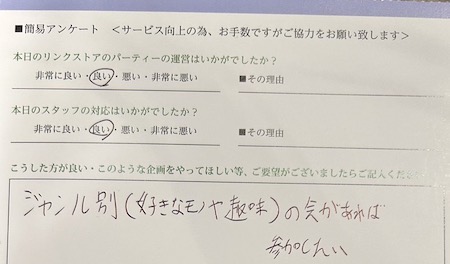 ■簡易アンケート　＜サービス向上の為、お手数ですがご協力をお願い致します＞
本日のリンクストアのパーティーの運営はいかがでしたか？
非常に良い・良い・悪い・非常に悪い　■その理由
本日のスタッフの対応はいかがでしたか？
非常に良い・良い・悪い・非常に悪い　■その理由
こうした方が良い・このような企画をやってほしい等、ご要望がございましたらご記入くださ
ジャンル別(好きなモノや趣味)の会があれば
参加したい